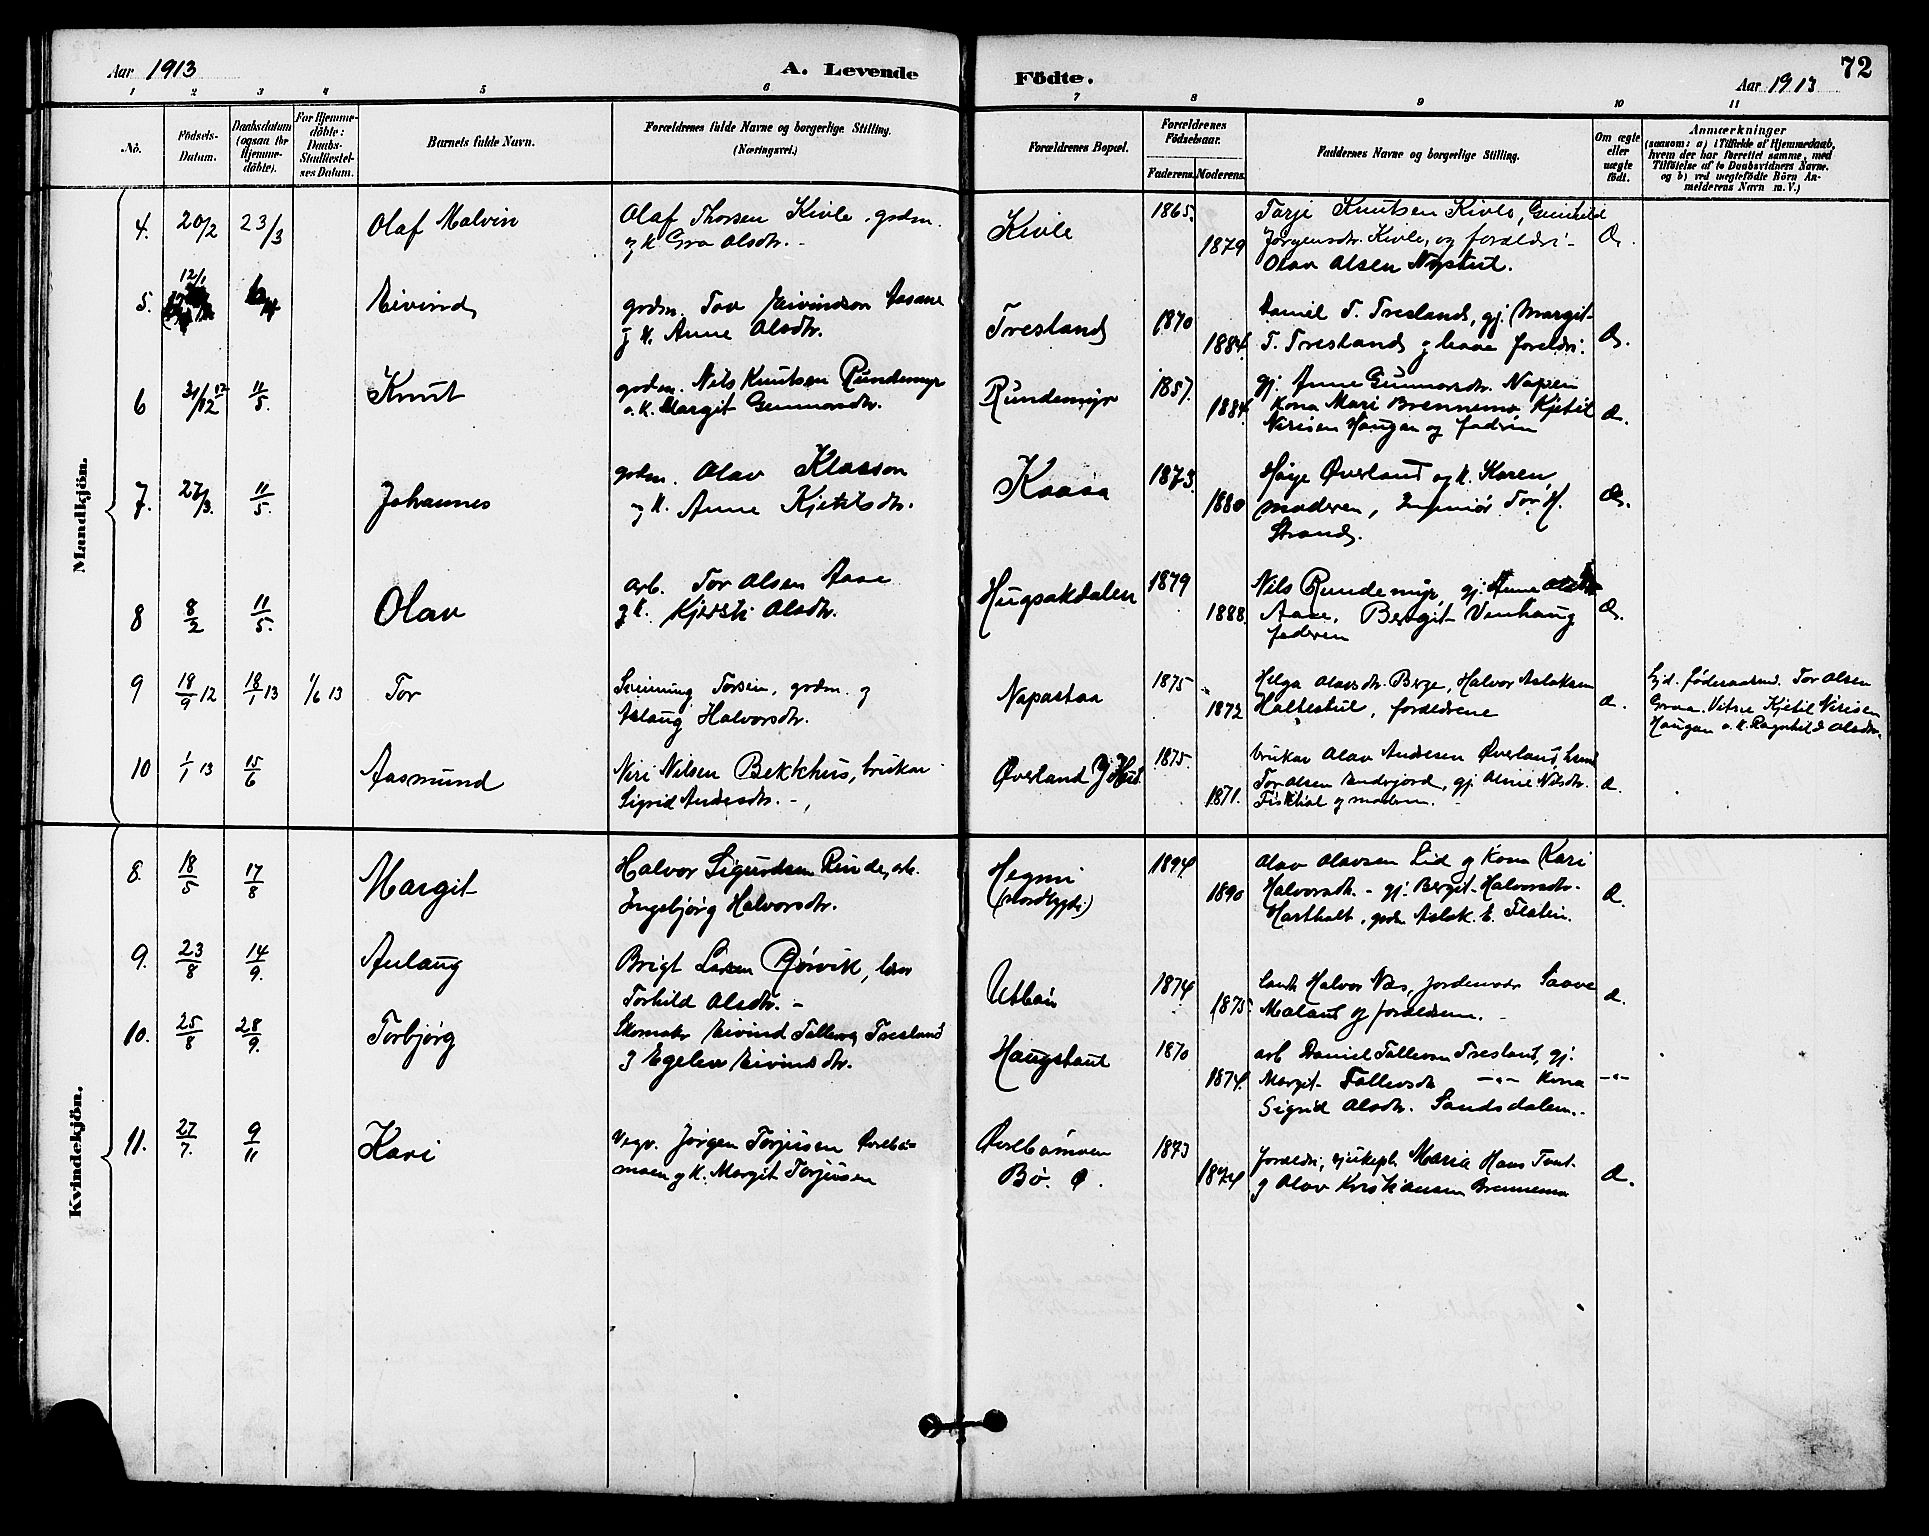 Aar 1913
A. Levende
Födte.
72
Aar 1913
1 2 3 4 5 6 7 8 9 10 11
No.
Födsels-
Datum.
Daabsdatum
(ogsaa for
Hjemme-
döbte).
For Hjemme-
döbte:
Daabs-
Stadfæstel-
ses Datum.
Barnets fulde Navn.
Forældrenes fulde Navne og borgerlige Stilling.
(Næringsvei.)
Forældrenes Bopæl.
Forældrenes
Födselsaar.
Faderens. Moderens.
Faddernes Navne og borgerlige Stilling.
Om ægte
eller
uægte
födt.
Anmærkninger
(saasom: a) i Tilfælde af Hjemmedaab,
hvem der har forrettet samme, med
Tilföielse af to Daabsvidners Navne.
og b) ved uægtefödte Börn An-
melderens Navn m. V.)
Mandkjön.
4. 20/2 23/3 Olaf Malvin
Olaf Thorsen Kivle, grdm.
og k. Gro Olsdtr. -
Kivle 1865. 1879
Tarje Knutsen Kivle, Gunhild
Jørgensdtr. Kivle, og forældri -
Olav Olsen Nystul.
Æ.
5. 12/1 Eivind
grdm. Tov Eivindson Aasane
g k. Anne Olsdtr.
Tresland 1870 1884.
Daniel T. Tresland, gj. Margit
T. Tresland g baae foreldri.
Æ.
6 31/12 12 11/5. Knut
grdm. Nils Knutsen Rundemyr
o. k. Margit Gunnarsdtr.
Rundemyr 1857. 1884.
gj. Anne Gunnarsdtr. Napien
Kona Mari Brennemo Kjetil
Nirisen Haugan og fadrin
Æ.
7. 27/3. 11/5. Johannes
grdm. Olav Klasson
og k. Anne Kjetilsdtr.
Kaasa 1873. 1880
Høye Øverland og k. Karen,
moderen, Ingeniør Tor H.
Strand.
Æ.
8 8/2 11/5. Olav
arb. Tor Olsen Aase
g k. Kjersti Olsdtr.
Hugsakdalen 1879 1888.
Nils Rundemyr, gj. Anne
Aase, Bergit Venhaug
faderen
Æ.
9 18/9 12 18/1 13 1/6 13 Tor
Sveinung Torsen, grdm. g
Aslaug Halvorsdtr.
Napastaa 1875 1872
Helga Olavsdtr. Berge, Halvor Aslaksen
Haltestul, forældrene
Æ.
Hjd. Tor Olsen
Graa. Kjetil Nirisen
Haugan o. k. Ragnhild Olsdtr.
10 1/1 13 15/6 Aasmund
Niri Nilsen Bekkhus, brukar
Sigrid Andersdtr. -,
Øverland 1875. 1871.
brukar Olav Andersen Øverland,
Tor Olsen gj. Nilsdtr.
g moderen. -
Æ.
Kvindekjön.
8. 18/5 17/8 Margit
Halvor Sigurdsen Rinde, arb.
Ingebjørg Halvorsdtr.
Hegni
(Nordbygdi)
1894 1890
Olav Olavsen Lid g kona Kari
Halvorsdtr. - gj. Bergit Halvorsdtr.
Hartholt, grdm Aslak E. Flatin.
Æ.
9. 23/8 14/9. Aulaug
Brigt Larsen Rørvik,
Torhild Olsdtr. -
Utbøen 1874 1875.
Halvor Næs,
g foreldrene. -
Æ.
10. 25/8 28/9. Torbjørg
Skomakr Eivind Tallevsen Tresland
g Egelev Eivindsdtr.
Haugstaul 1870 1874.
arb Daniel Tallevsen Tresland, gj.
Margit Tallevsdtr -"- Kona
Sigrid Olsdtr. Sandsdalen.
-"-
11. 27/7. 9/11 Kari
Vegv. Jørgen Torjusen Øvrebø-
moen g k. Margit Torjusen
Øvrebømoen
Bø. Ø.
1873 1874
Foreldri, sjukepl. Maria Hans
g Olav Kristiansen Brennemo
Æ.